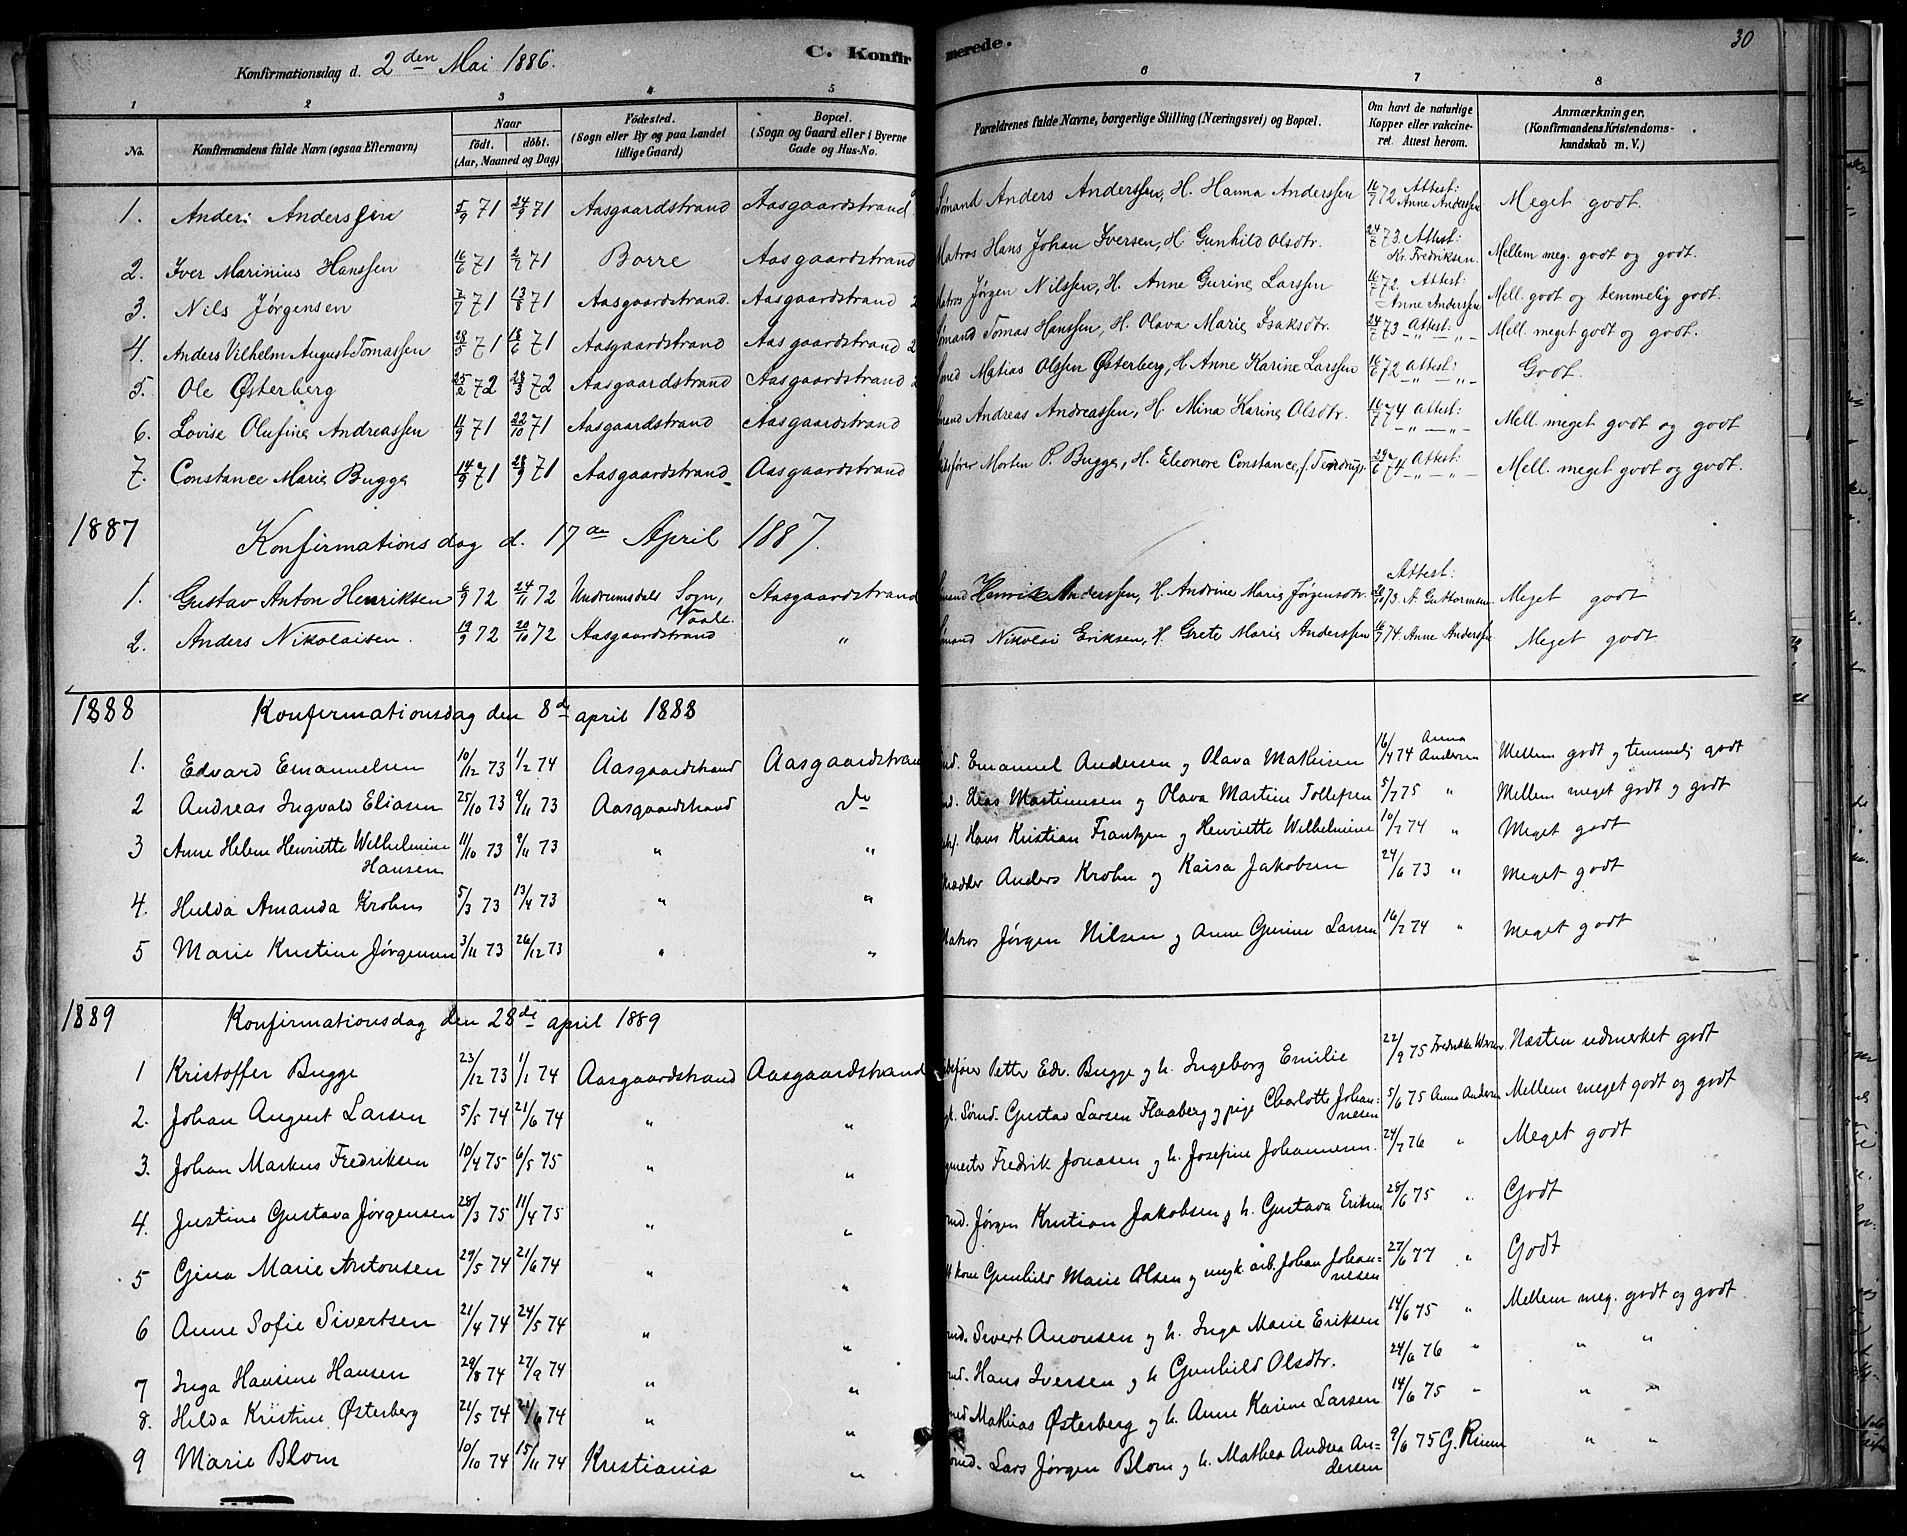 30
Konfirmationsdag d. 2 den Mai 1886. C. Konfirmerede.
1 2 3 4 5 6 7 8
No. Konfirmandens fulde Navn (ogsaa Efternavn) Naar født. døbt. (Aar, Maaned og Dag) Fødested. (Sogn eller By og paa Landet tillige Gaard) Bopæl. (Sogn og Gaard eller i Byerne Gade og Hus-No. Forældrenes fulde Navne, borgerlige Stilling (Næringsvei) og Bopæl. Om havt de naturlige Kopper eller vakcineret. Attest herom. Anmærkninger. (Konfirmandens Kristendomskundskab m. V.)
1. Anders Anderssen 5/9 71 24/9 71 Aasgaardstrand Aasgaardstrand Sømand Anders Anderssen, H. Hanna Anderssen 16/7 72 Attest: Anne Anderssen Meget godt.
2. Iver Marinius Hanssen 16/6 71 2/7 71 Borre Aasgaardstrand Matros Hans Johan Iversen, H. Gunhild Olsdtr. 24/7 73. Attest: Kr. Fredriksen. Mellem meg. godt og godt.
3. Nils Jørgensen 7/7 71 13/8 71 Aasgaardstrand. Aasgaardstrand Matros Jørgen Nilssen, H. Anne Gurine Larssen 16/7 72 Attest: Anne Anderssen Mell. godt og temmelig godt.
4. Anders Vilhelm August Tomassen 28/5 71 18/6 71 Aasgaardstrand Aasgaardstrand Sømand Tomas Hanssen, H. Olava Marie Isaksdtr. 24/7 73 Attest: -„- -„- Mell. meget godt og godt.
5. Ole Østerberg 25/2 72 28/3 72 Aasgaardstrand Aasgaardstrand Smed Matias Olssen Østerberg, H. Anne Karine Larssen 16/6 72 Attest: -„- -„- Godt.
6. Lovise Olufine Andreassen 11/9 71 22/10 71 Aasgaardstrand Aasgaardstrand Sømand Andreas Andreassen, H. Mina Karine Olsdtr. 16/7 74 Attest: -„- -„- Mell. meget godt og godt
7. Constance Marie Bugge 14/9 71 28/9 71 Aasgaardstrand Aasgaardstrand Skibsfører Morten P. Bugge, H. Eleonore Constance, f. 29/6 74 Attest: -„- -„- Mell. meget godt og godt.
1887 Konfirmationsdag d. 17de April 1887.
1. Gustav Anton Henriksen 6/9 72 24/11 72 Undrumsdals Sogn, Vaale. Aasgaardstrand Sømand Henrik Anderssen, H. Andrine Marie Jørgensdtr. 73. Attest: A. Guttormsen Meget godt
2. Anders Nikolaisen. 19/9 72 20/10 72 Aasgaardstrand „ Sømand Nikolai Eriksen, H. Grete Marie Anderssen 16/7 74 Anne Anderssen Meget godt
1888 Konfirmationsdag den 8de april 1888
1. Edvard Emanuelsen 10/12 73 1/2 74 Aasgaardstrand Aasgaardstrand Emanuel Andersen og Olava Mathisen 16/4 74 Anna Andersen Mellem godt og temmelig godt
2 Andreas Ingvald Eliasen 25/10 73 9/11 73 Aasgaardstrand do Elias Martinusen og Olava Martine Tollefsen 5/7 75 „ Mellem meget godt og godt
3 Anne Helene Henriette Wilhelmine Hansen 11/10 73 9/11 73 „ „ Hans Kristian Frantzen og Henriette Wilhelmine 10/7 74 „ Meget godt
4. Hulda Amanda Krohn 5/3 73 13/4 73 „ „ Skrædder Anders Krohn og Kaisa Jakobsen 24/6 73 „ Meget godt
5 Marie Kristine Jørgensen 3/11 73 26/12 73 „ „ Matros Jørgen Nilsen og Anne Gurine Larsen 16/7 74 „ Meget godt
1889 Konfirmationsdag den 28de april 1889
1 Kristoffer Bugge 23/12 73 1/1 74 Aasgaardstrand Aasgaardstrand Skibsfører Petter Edv. Bugge og h. Ingeborg Emilie 22/9 75 Fredrikke Næsten udmerket godt
2. Johan August Larsen 5/5 74 21/6 74 „ „ Sømd. Gustav Larsen Flaaberg og pige Charlotte Johannesen 5/6 75 Anna Andersen Mellem meget godt og godt
3. Johan Markus Fredriksen 10/4 75 6/5 75 „ „ Fredrik Jonasen og h. Josefine Johannesen. 24/7 76 „ Meget godt
4. Justine Gustava Jørgensen 28/3 75 11/4 75 „ „ Sømd. Jørgen Kristian Jakobsen og h. Gustava Eriksen 28/6 75 „ Godt
5 Gina Marie Antonsen 29/5 74 21/6 74 „ „ kone Gunhild Marie Olsen og ungk. arb. Johan Johannesen 27/6 77 „ Godt
6 Anne Sofie Sivertsen 21/4 74 24/5 74 „ „ Sømd. Sivert Aronsen og h. Inga Marie Eriksen 14/6 75 „ Mellem meg. godt og godt
7 Inga Hansine Hansen 29/8 74 27/9 74 „ „ Sømd. Hans Iversen og h Gunhild Olsdtr. 24/6 76 „ „ „
8. Hilda Kristine Østerberg 21/5 74 21/6 74 „ „ Smed Mathias Østerberg og h. Anne Karine Larsen 14/6 75 „ „ „
9 Marie Blom 10/10 74 15/11 74 Kristiania „ Sømd. Lars Jørgen Blom og h. Mathea Andrea Andersen 9/6 75 G. „ „